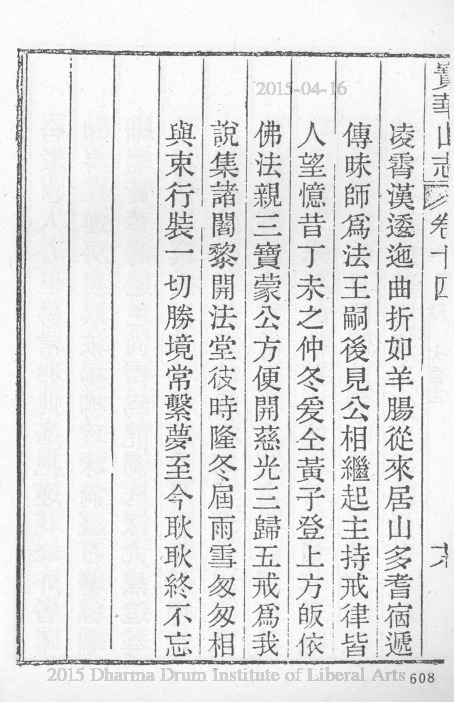 寶華山志 卷十四
凌霄漢逶迤曲折如羊腸從來居山多耆宿遞
傳昧師爲法王嗣後見公相繼起主持戒律皆
人望憶昔丁未之仲冬爰仝黃子登上方皈依
佛法親三寶蒙公方便開慈光三歸五戒爲我
說集諸闍黎開法堂彼時隆冬屆雨雪匆匆相
與束行裝一切勝境常繫夢至今耿耿終不忘
2015-04-16
2015 Dharma Drum Institute of Liberal Arts
608